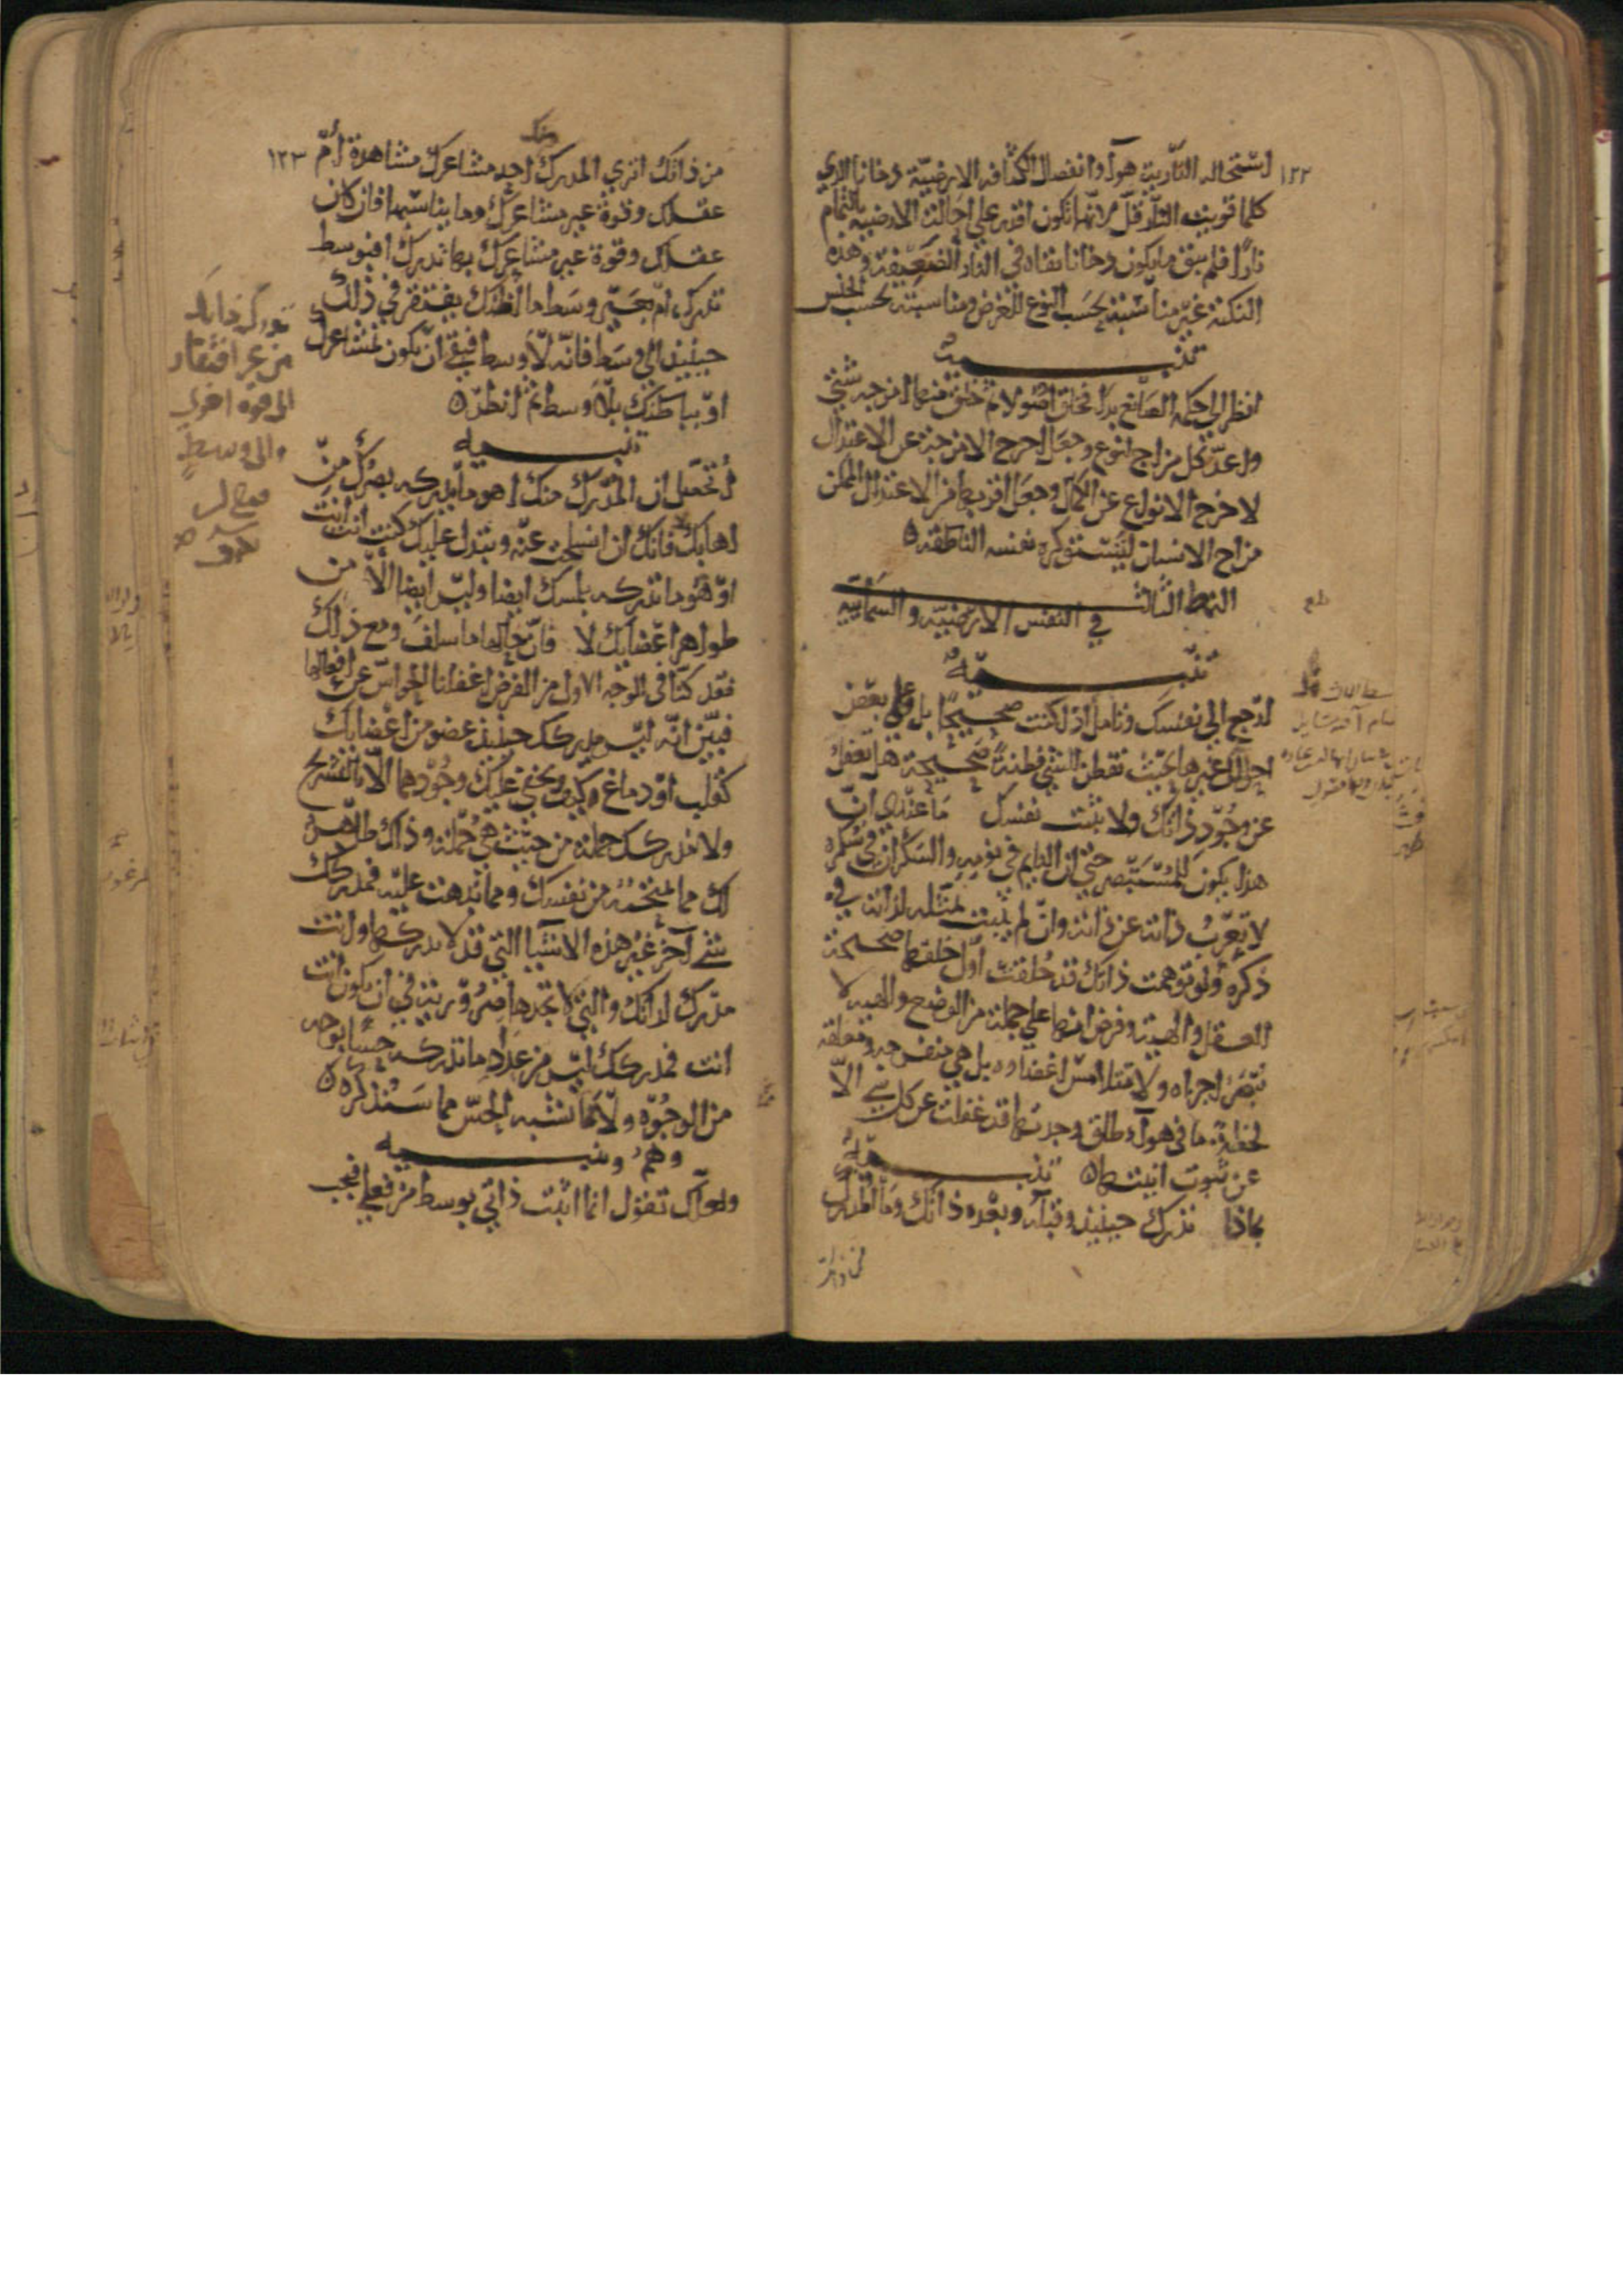 ١٢٢
استحاله النارية هوآ وانفصال الكثافه الارضيّة دخانا الذي
كلما قويت النار قلّ لانها تكون اقدر علي احالة الارضية بالتمام
نارًا فلم يبق ما يكون دخانا بقاه في النار الضعيفة وهذه
النكتة غير مناسبة بحسب النوع للغرض ومناسبته بحسب الجنس
تنبيه
انظر الي حكمة الصانع بدا فخلق اصولا ثم خلق منها امزجه شتي
واعدّ كل مزاج لنوع وجعل اخرج الامزجة عن الاعتدال
لاخرج الانواع عن الكمال وجعل اقربها من الاعتدال الممكن
مزاج الانسان ليستوكره نفسه الناطقة ه
النمط الثالث
في النفس الارضيّه والسمآييّه
تنبيه
ارجع الي نفسك وتأمل اذا كنت صحيحًا بل وعلي بعض
احوالك غيرها بحيث تفطن للشي فطنة صحيحة هل تغفل
عن وجود ذاتك ولا تثبت نفسك ما عندي ان
هذا يكون للمستبصر حتي ان النايم في نومه والسكران في سكره
لا تعزب ذاته عن ذاته وان لم يثبت تمثله لذاته في
ذكره ولو توهمت ذاتك قد خلقت اول خلقها صحيحة
العقل والهيئة وفرض انها علي جملة من الوضع والهيه لا
تبصر اجزاه ولا تتلامس اعضاوه بل هي منفرجه ومعلقه
لحظة ما في هوآ طلق وجدتها قد غفلت عن كل شي الا
عن ثبوت انيتها ه تنبيه
بماذا تدرك حينيذ وقبله وبعده ذاتك وما المدرك
من ذاتك
١٢٣
من ذاتك اتري المدرك منك احد مشاعرك مشاهدة ام
عقلك وقوة غير مشاعرك وما يناسبها فان كان
عقلك وقوة غير مشاعرك بها تدرك افبوسط
تدرك ام بغير وسط ما اظنك يفتقر في ذلك
حينيذ الي وسط فانه لا وسط فبقي ان يكون بمشاعرك
او بباطنك بلا وسط ثم انظر ه
تنبيه
اتحصّل ان المدرك منك اهو ما يدركه بصرك من
اهابك لا فانك ان انسلخت عنه وتبدل عليك كنت انت انت
او هو ما تدركه بلمسك ايضا وليس ايضا الا من
ظواهر اعضايك لا فان حالها ما سلف ومع ذلك
فقد كنا في الوجه الاول من الفرض اغفلنا الحواس عن افعالها
فبيّن انه ليس مدركك حينيذ عضو من اعضايك
كقلب او دماغ وكيف ويخفي عليك وجودهما الا بالتشريح
ولا مدركك جملة من حيث هي جملة وذلك ظاهر
لك مما تمتحنه من نفسك ومما نبهت عليه فمدركك
شي آخر غير هذه الاشيا التي قد لا تدركها وانت
مدرك لذاتك والتي لا تجدها ضرورية في ان تكون انت
انت فمدركك ليس من عداد ما تدركه حسًا بوجه
من الوجوه ولا مما يشبه الحس مما سنذكره ه
وهم وتنبيه
ولعلك تقول انما اثبت ذاتي بوسط من فعلي فيجب
من غير افتقار
الي قوة اخري
والي وسط